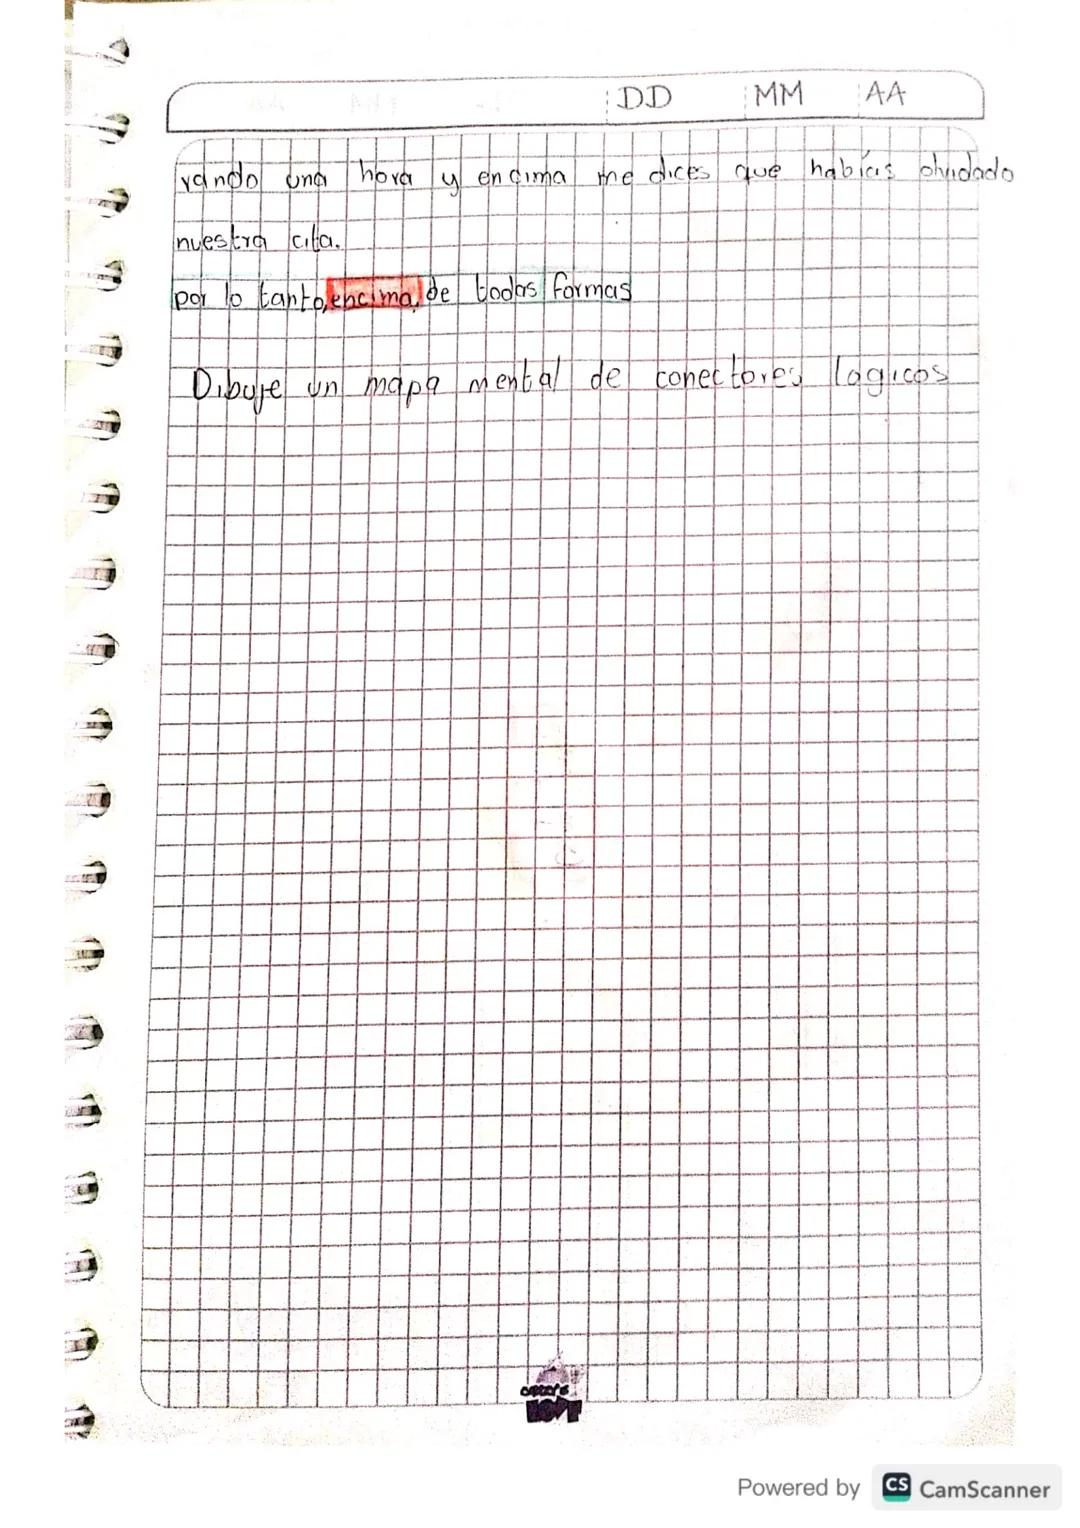 DD MM AA
rando una hora y encima me dices que habías olvidado
nuestra cita.
por lo tanto, encima, de todas formas
Dibuje un mapa mental de conectores logicos
LOVE
Powered by CS CamScanner